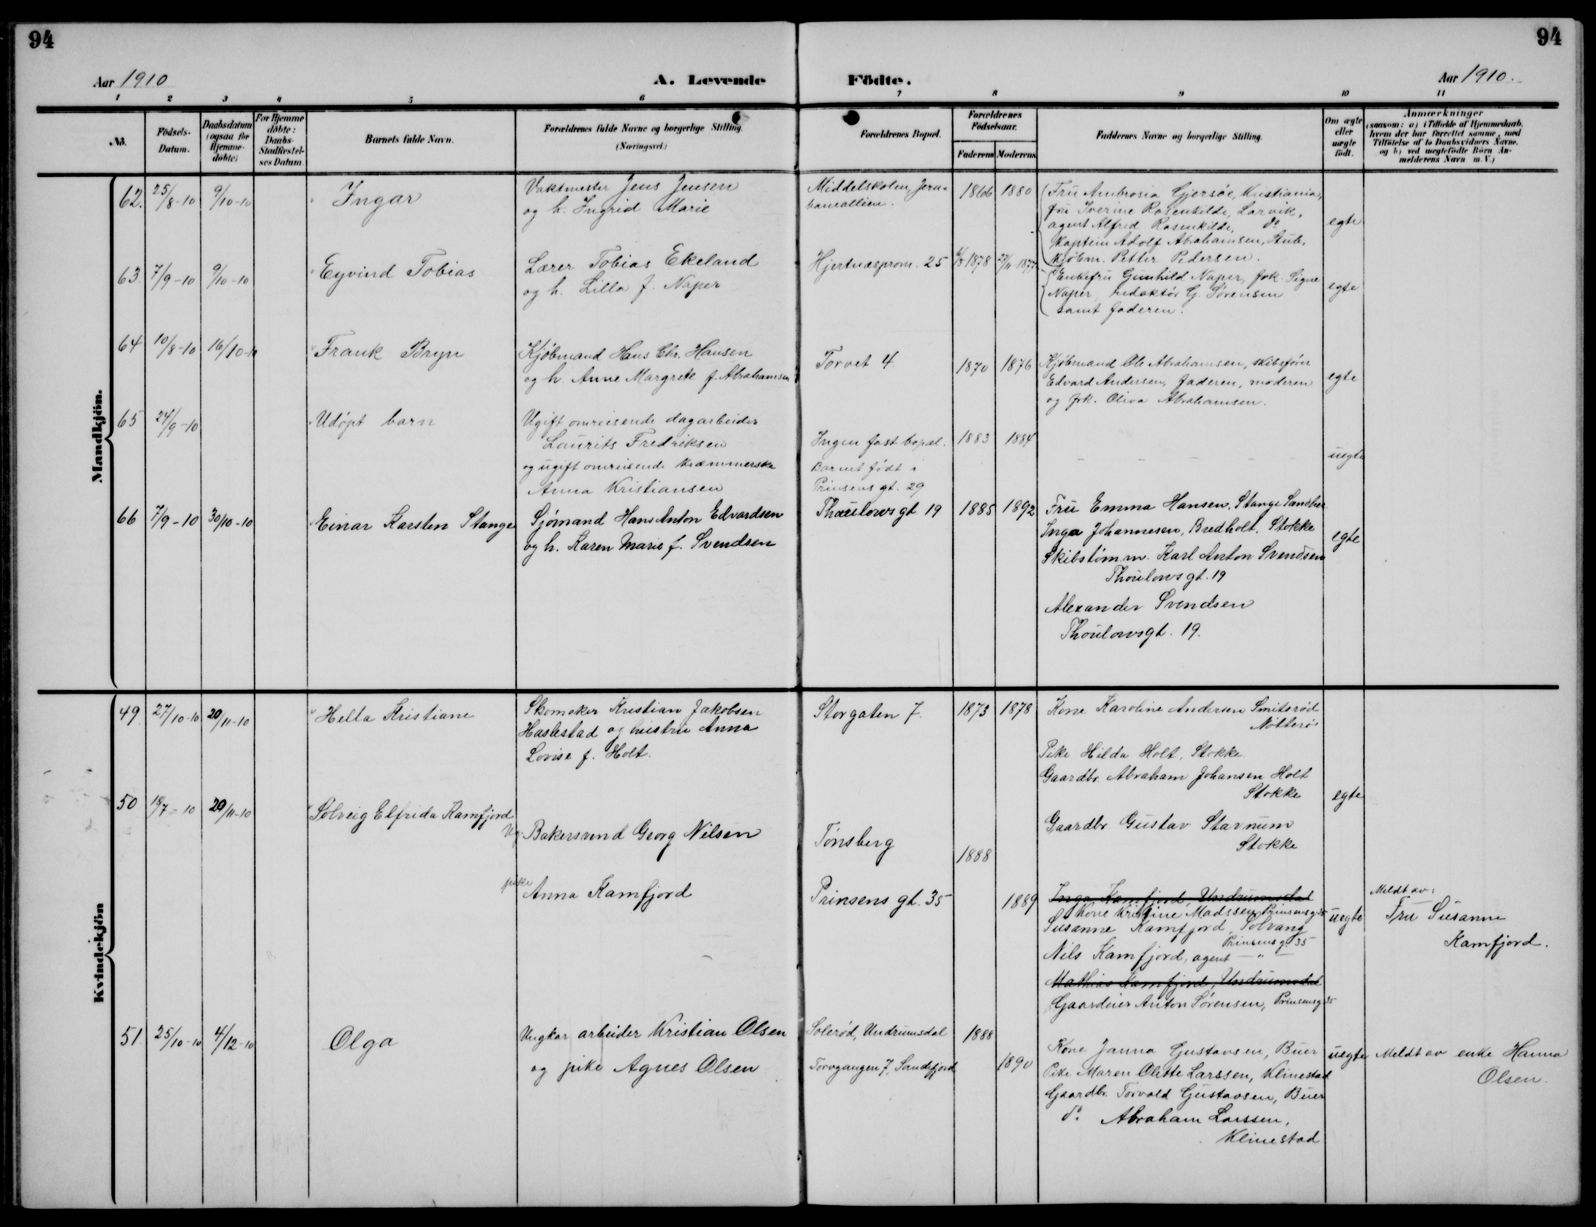 94
94
Aar 1910
A. Levende Födte.
Aar 1910.
1 2 3 4 5 6 7 8 9 10 11
No.
Födsels-Datum.
Daabsdatum (ogsaa for Hjemme-döbte)
For Hjemme döbte: Daabs-Stadfæstel-ses Datum
Barnets fulde Navn.
Forældrenes fulde Navne og borgerlige Stilling.
(Næringsvei.)
Forældrenes Bopæl.
Forældrenes Fødselsaar.
Faderens Moderens
Faddernes Navne og borgerlige Stilling.
Om ægte eller uægte födt.
Anmærkninger
(saasom: a) i Tilfælde af Hjemmedaab, hvem der har forrettet samme, med Tilföielse af to Daabsvidners Navne. og b) ved uægtefödte Börn An-melderens Navn m. V.)
Mandkjön.
62. 25/8-10 9/10-10 Ingar
Vaktmester Jens Jensen
og h. Ingrid Marie
Middelskolen, Jern-
banealleen.
1866 1880
Fru Ambrosia Gjersøe, Kristiania,
fru Iverine Rosenkilde, Larvik,
agent Alfred Rosenkilde, do
Kaptein Adolf Abrahamsen, Hub.
Kjøbm. Petter Pedersen.
egte
63 7/9-10 9/10-10 Eyvind Tobias
Lærer Tobias Ekeland
og h. Lilla f. Naper
Hjertnæsprom. 25
1878 1877
Enkefru Gunhild Naper, frk. Signe
Naper, redaktør G. Sørensen
samt faderen.
egte
64 10/8-10 16/10-10 Frank Bryn
Kjøbmand Hans Chr. Hansen
og h. Anne Margrete f. Abrahamsen
Torvet 4
1870 1876
Kjøbmand Ole Abrahamsen, skibsfører
Edvard Andersen, faderen, moderen
og frk. Oliva Abrahamsen.
egte
65 24/9-10 Udøpt barn
Ugift omreisende dagarbeider
Laurits Fredriksen
og ugift omreisende kræmmerske
Anna Kristiansen
Ingen fast bopæl.
Barnet født i
Prinsens gt. 29
1883 1884
uegte
66 7/9-10 30/10-10 Einar Karsten Stange
Sjømand Hans Anton Edvardsen
og h. Karen Marie f. Svendsen
Thaulows gt 19
1885 1892
Fru Emma Hansen, Stange Sandher
Inga Johannesen, Bredholt, Stokke
Skibstømm. Karl Anton Svendsen
Thoulows gt. 19
Alexander Svendsen
Thoulowsgt. 19.
egte
Kvindekjön
49. 27/10-10 20/11-10 Hella Kristiane
Skomaker Kristian Jakobsen
Haslestad og hustru Anna
Lovise f. Holt.
Storgaten 7.
1873 1878
Kone Karoline Andersen Smiterød
Nøtterø
Pike Hilda Holt, Stokke
Gaardbr. Abraham Johansen Holt
Stokke
Gaardbr Gustav Stavnum
Stokke
egte
50 18/7-10 20/11-10 Solveig Elfrida Ramfjord
Bakersvend Georg Nilsen
pike Anna Ramfjord
Tønsberg
Prinsens gt. 35
1888
1889
Inga Ramfjord, Undrumsdal
Kone Kristine Madssen Prinsensg 35
Susanne Ramfjord, Solvang
Prinsensgt 35
Nils Ramfjord, agent — " —
Mathias Ramfjord, Undrumsdal
Gaardeier Anton Sørensen, Prinsensg 35
uegte
Meldt av:
Fru Susanne
Ramfjord.
51. 25/10-10 4/12-10 Olga
Ungkar arbeider Kristian Olsen
og pike Agnes Olsen
Solerød, Undrumsdal
Torvgangen 7, Sandefjord
1888
1890
Kone Janna Gustavsen, Buer
Pike Maren Olette Larssen, Klinestad
Gaardbr. Torvald Gustavsen, Buer
do Abraham Larssen,
Klinestad
uegte
Meldt av enke Hanna
Olsen.